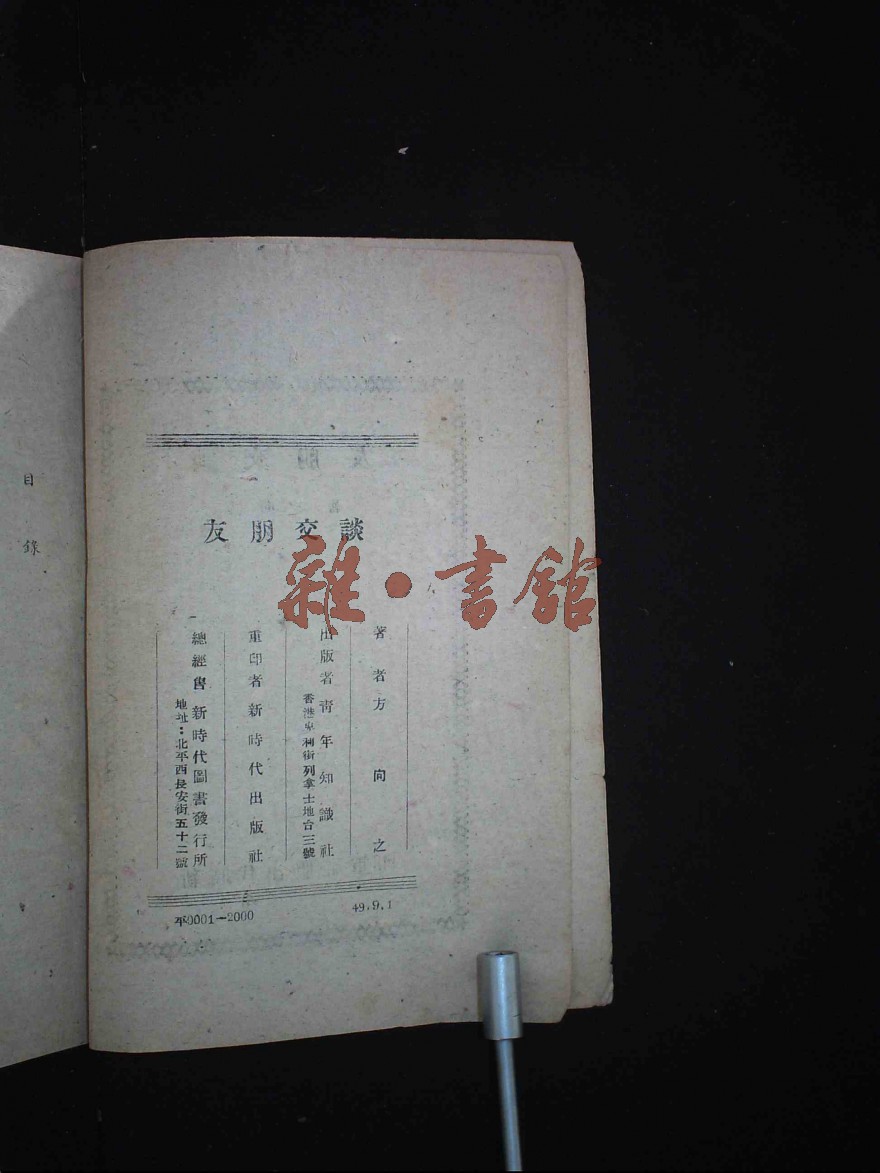 友朋交談
雜·書館
著者方向之
出版者青年知識社
香港卑利街列拿士地台三號
重印者新時代出版社
總經售新時代圖書發行所
地址：北平西長安街五十二號
平0001—2000
49.9.1
目錄